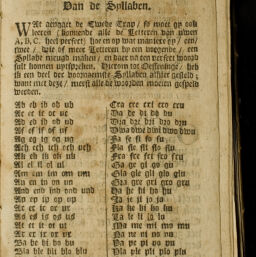 Van de Syllaben.
WAt aengaet de Tweede Trap / so moet gy ook
leeren / konnende alle de Letteren van uwen
A, B, C. heel perfect / hoe en op wat maniere gy / een /
twee / drie of meer Letteren by een voegende / een
Syllabe nieuw maken / en daer na een perfect woord
sult konnen uytspreken. Hierom tot Oeffeninge / heb
ik een deel der voornaemste Syllaben alhier gestelt ;
want met dese / meest alle de woorden moeten gespelt
werden.
Ab eb ib ob ub
Ac ec ic oc uc
Ad ed id od ud
Af ef if of uf
Ag eg ig og ug
Ach ech ich och uch
Ak ek ik ok uk
Al el il ol ul
Am em im om um
An en in on un
And end ind ond und
Ap ep ip op up
Ar er ir or ur
As es is os us
At et it ot ut
Ax ex ix ox ux
Ba be bi bo bu
Bla ble bli blo blu
Cra cre cri cro cru
Da de di do du
Dra dre dri dro dru
Dwa dwe dwi dwo dwu
Fa fe fi fo fu
Fla fle fli flo flu
Fra fre fri fro fru
Ga ge gi go gu
Gla gle gli glo glu
Gra gre gri gro gru
Ha he hi ho hu
Ja je ji jo ju
Ka ke ki ko ku
La le li lo lu
Ma me mi mo mu
Na ne ni no nu
Pa pe pi po pu
Pla ple pli plo plu